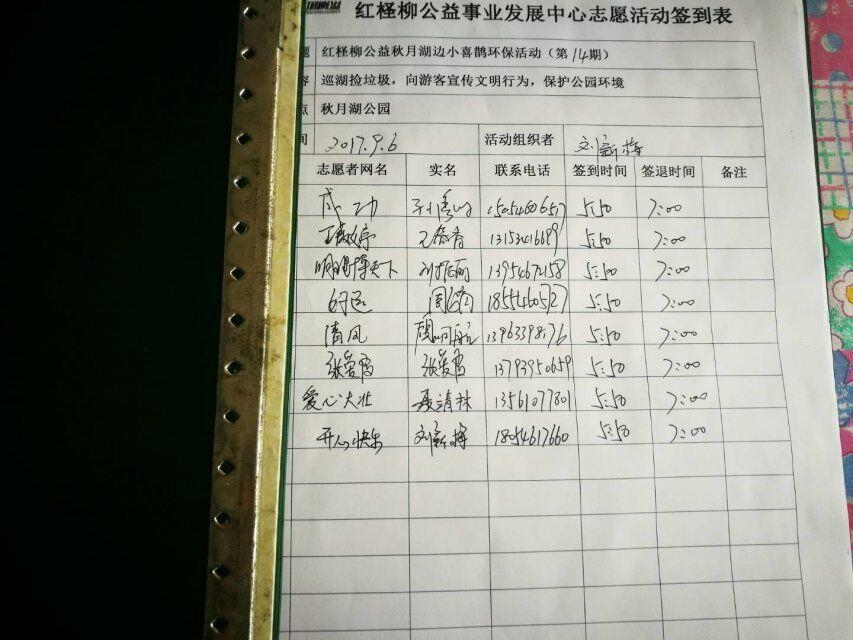 红柽柳公益事业发展中心志愿活动签到表
题 红柽柳公益秋月湖边小喜鹊环保活动（第14期）
容 巡湖捡垃圾，向游客宣传文明行为，保护公园环境
点 秋月湖公园
间 2017.9.6 活动组织者 刘新梅
志愿者网名 实名 联系电话 签到时间 签退时间 备注
成功 5:50 7:00
5:50 7:00
13954672158 5:50 7:00
好运 18554605727 5:50 7:00
清风 5:50 7:00
张爱霞 张爱霞 13793950659 5:50 7:00
爱心大壮 聂清林 13561077801 5:50 7:00
开心快乐 刘新梅 18054617660 5:50 7:00